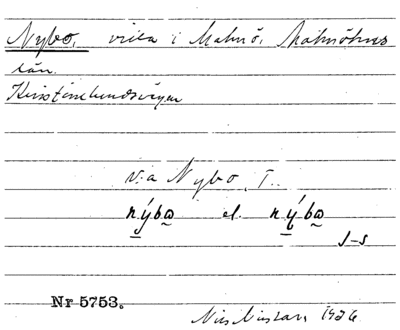 Nybo, villa i Malmö, Malmöhus
län.
Kristinelundsvägen
v.a Nybo, T..
nýbo el. nýbo
J-s
Nr 5753.
1926